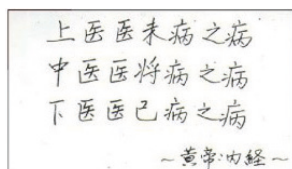 上医医未病之病
中医医将病之病
下医医已病之病
~黄帝内経~